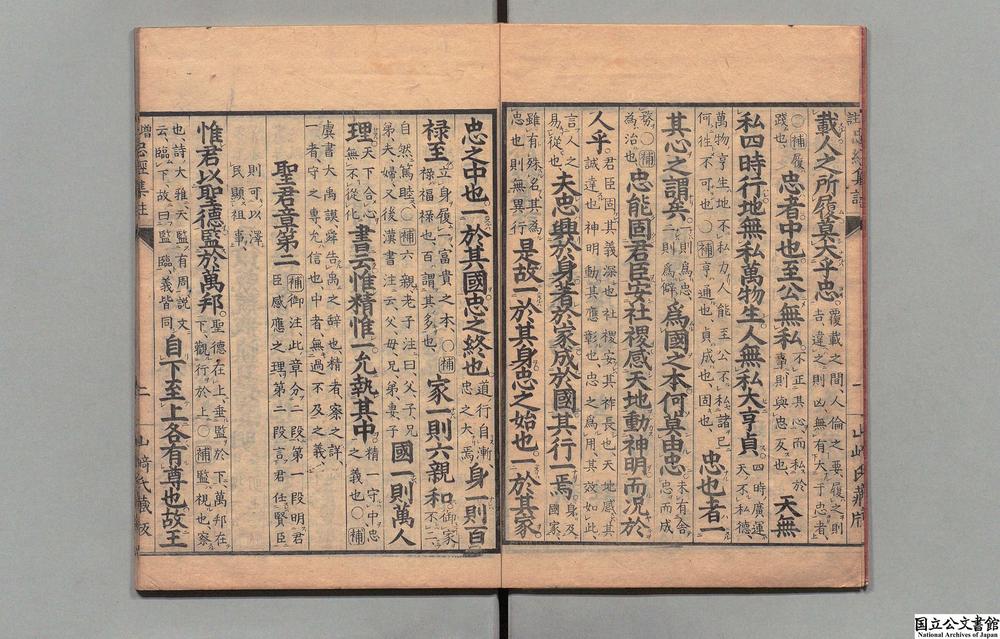 註忠經集註
一
山崎氏藏版
載人之所履莫大乎忠 覆載之間人倫之要履之則
吉違之則凶無有大于忠者
〇補履
踐也 忠者中也至公無私 不正其心而私於
事則與忠反也 天無
私四時行地無私萬物生人無私大亨貞 四時廣運
天不私德
萬物亨生地不私力人能至公不私諸己
何往不可也〇補亨通也貞成也固也 忠也者一
其心之謂矣 一則為忠
二則為僻 為國之本何莫由忠 未有舍
忠而成
務〇補
為治也 忠能固君臣安社稷感天地動神明而況於
人乎 君臣固其義深也社稷安其祚長也天地感其
誠達也神明動其應彰也忠之為用其效如此
言人之
易從也 夫忠興於身著於家成於國其行一焉 身及
國家
雖有殊名其為
忠也則無異行 是故一於其身忠之始也一於其家
忠之中也一於其國忠之終也 道行自漸
忠之大焉 身一則百
祿至 立身履一富貴之本〇補
祿福祿也百謂其多也 家一則六親和 御家
不二
自然篤睦〇補六親老子注曰父子兄
弟夫婦又後漢書注云父母兄弟妻子 國一則萬人
理 天下合心
無不從化 書云惟精惟一允執其中 精一守中忠
之義也〇補
虞書大禹謨舜告禹之辭也精者察之詳
一者守之專允信也中者無過不及之義
聖君章第二 補御注此章分二段第一段明君
臣感應之理第二段言君任賢臣
則可以澤
民顯祖事
惟君以聖德監於萬邦 聖德在上垂監於下萬邦在
下觀行於上〇補監視也察
也詩大雅天監有周説文
云臨下故曰監臨義皆同 自下至上各有尊也故王
增忠經集註
二
山崎氏藏版
国立公文書館
National Archives of Japan